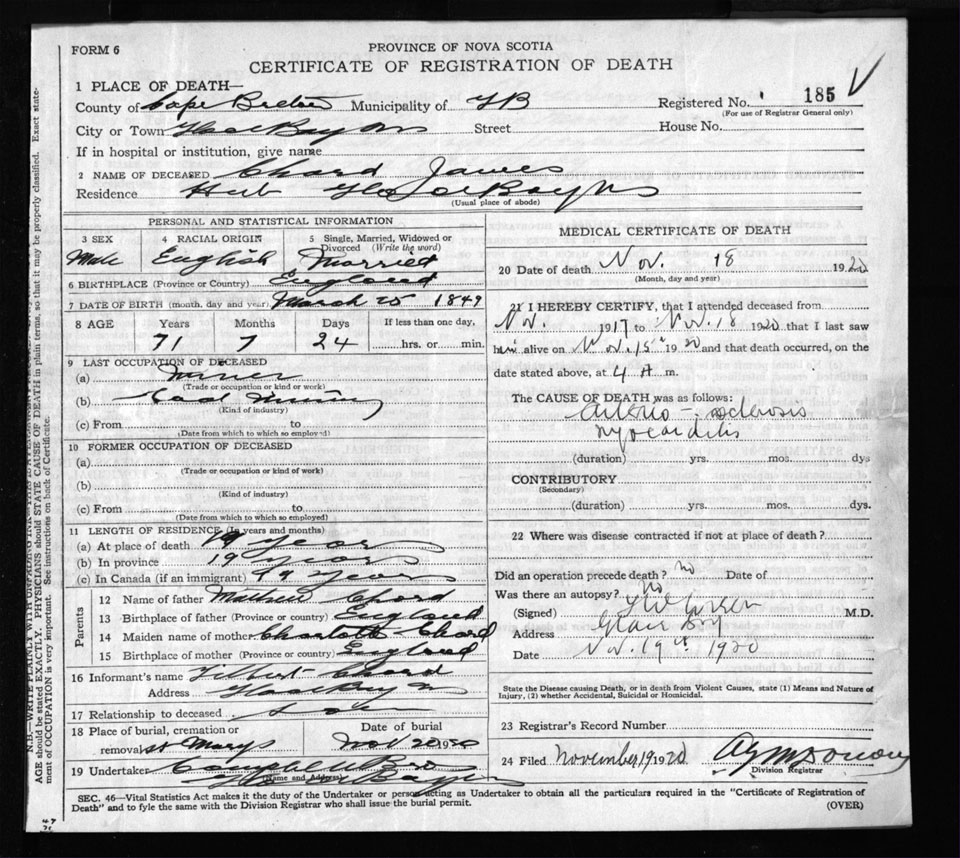 FORM 6
PROVINCE OF NOVA SCOTIA
CERTIFICATE OF REGISTRATION OF DEATH
1 PLACE OF DEATH—
County of Cape Breton Municipality of Registered No. 185
(For use of Registrar General only)
City or Town Street House No.
If in hospital or institution, give name
2 NAME OF DECEASED Chard James
Residence
(Usual place of abode)
PERSONAL AND STATISTICAL INFORMATION
3 SEX 4 RACIAL ORIGIN 5 Single, Married, Widowed or Divorced (Write the word)
Male English Married
6 BIRTHPLACE (Province or Country) England
7 DATE OF BIRTH (month, day and year) March 25 1849
8 AGE Years Months Days If less than one day,
71 7 24 hrs. or min.
9 LAST OCCUPATION OF DECEASED
(a) Miner
(Trade or occupation or kind or work)
(b) Coal Mining
(Kind of industry)
(c) From to
(Date from which to which so employed)
10 FORMER OCCUPATION OF DECEASED
(a)
(Trade or occupation or kind of work)
(b)
(Kind of industry)
(c) From to
(Date from which to which so employed)
11 LENGTH OF RESIDENCE (In years and months)
(a) At place of death 19 years
(b) In province 19 years
(c) In Canada (if an immigrant) 19 years
Parents
12 Name of father Mathew Chard
13 Birthplace of father (Province or country) England
14 Maiden name of mother Charlotte Chard
15 Birthplace of mother (Province or country) England
16 Informant's name Chard
Address
17 Relationship to deceased
18 Place of burial, cremation or removal Date of burial
St Marys Nov 20 1920
19 Undertaker
(Name and Address)
MEDICAL CERTIFICATE OF DEATH
20 Date of death Nov. 18 1920
(Month, day and year)
21 I HEREBY CERTIFY, that I attended deceased from
Nov. 1917 to Nov. 18 1920 that I last saw
him alive on Nov. 15th 1920 and that death occurred, on the
date stated above, at 4 A m.
The CAUSE OF DEATH was as follows:
Arterio-sclerosis
Myocarditis
(duration) yrs. mos. dys
CONTRIBUTORY
(Secondary)
(duration) yrs. mos. dys.
22 Where was disease contracted if not at place of death?
Did an operation precede death? no Date of
Was there an autopsy? No
(Signed) M.D.
Address Glace Bay
Date Nov. 19th 1920
State the Disease causing Death, or in death from Violent Causes, state (1) Means and Nature of
Injury, (2) whether Accidental, Suicidal or Homicidal.
23 Registrar's Record Number
24 Filed November 19 1920
Division Registrar
SEC. 46—Vital Statistics Act makes it the duty of the Undertaker or person acting as Undertaker to obtain all the particulars required in the "Certificate of Registration of
Death" and to fyle the same with the Division Registrar who shall issue the burial permit.
(OVER)
N.B.—WRITE PLAINLY WITH UNFADING INK
AGE should be stated EXACTLY. PHYSICIANS should STATE CAUSE OF DEATH in plain terms, so that it may be properly classified. Exact state-
ment of OCCUPATION is very important. See instructions on back of Certificate.